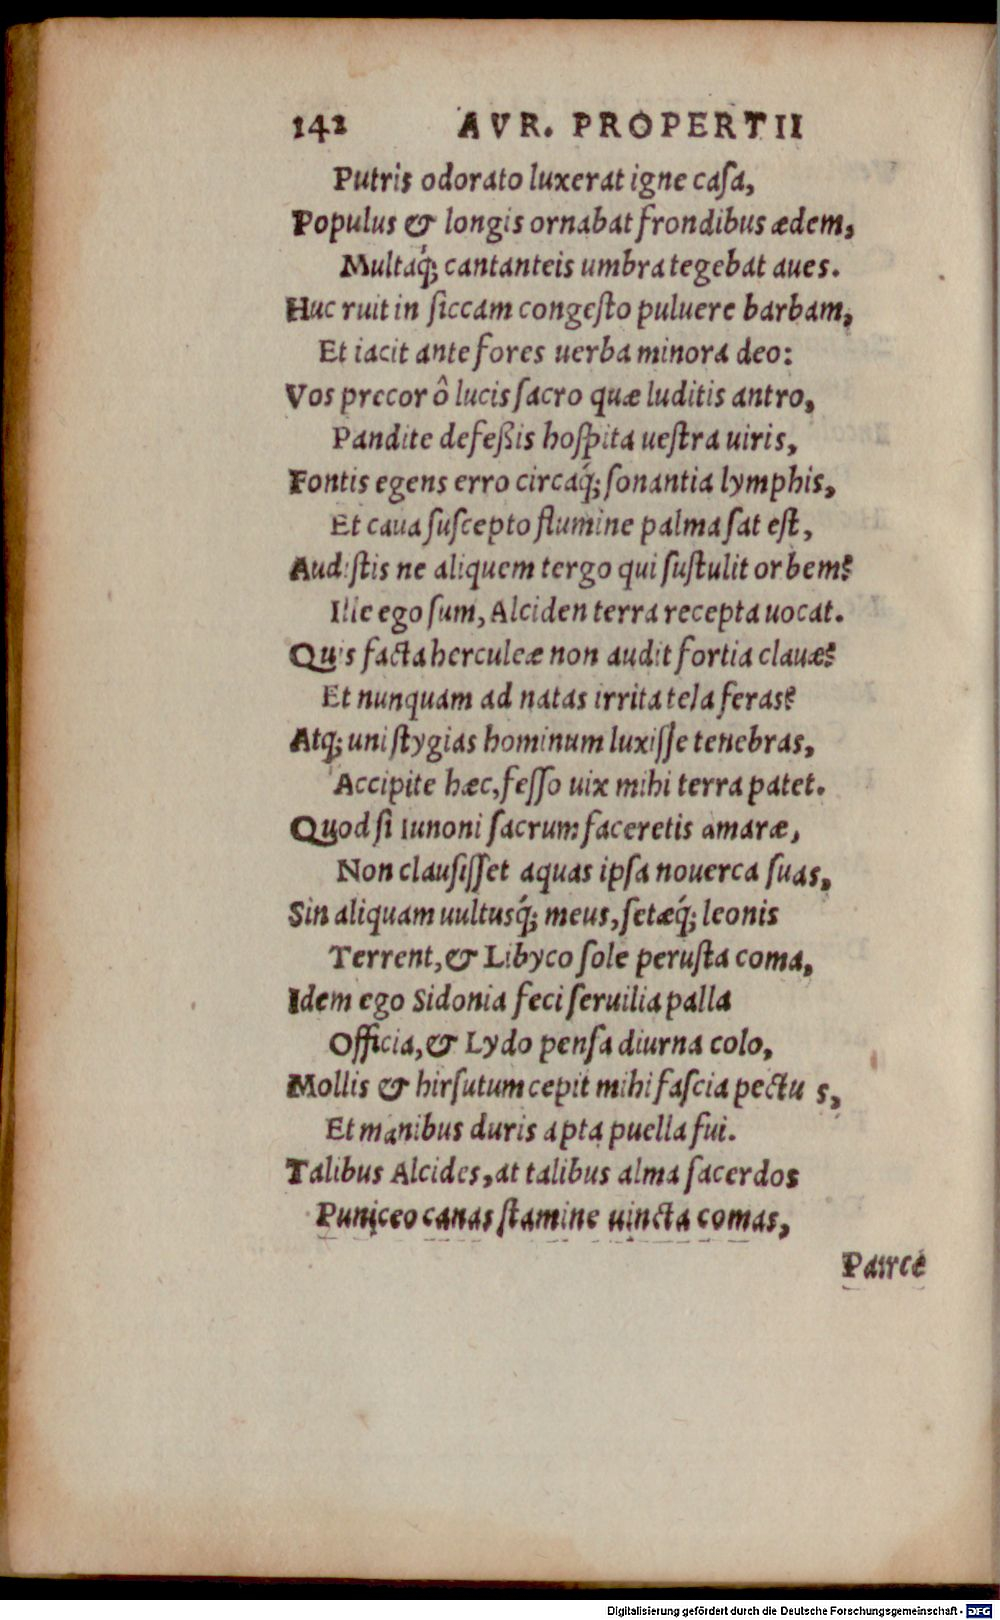 142 AVR. PROPERTII
Putris odorato luxerat igne caſa,
Populus & longis ornabat frondibus ædem,
Multaq́; cantanteis umbra tegebat aues.
Huc ruit in ſiccam congeſto puluere barbam,
Et iacit ante fores uerba minora deo:
Vos precor ô lucis ſacro quæ luditis antro,
Pandite defeßis hoſpita ueſtra uiris,
Fontis egens erro circaq́; ſonantia lymphis,
Et caua ſuſcepto flumine palma ſat eſt,
Audiſtis ne aliquem tergo qui ſuſtulit orbem?
Ille ego ſum, Alciden terra recepta uocat.
Quis facta herculeæ non audit fortia clauæ?
Et nunquam ad natas irrita tela feras?
Atq; uni ſtygias hominum luxiſſe tenebras,
Accipite hæc, feſſo uix mihi terra patet.
Quod ſi Iunoni ſacrum faceretis amaræ,
Non clauſiſſet aquas ipſa nouerca ſuas,
Sin aliquam uultusq́; meus, ſetæq́; leonis
Terrent, & Libyco ſole peruſta coma,
Idem ego Sidonia feci ſeruilia palla
Officia, & Lydo penſa diurna colo,
Mollis & hirſutum cepit mihi faſcia pectu s,
Et manibus duris apta puella fui.
Talibus Alcides, at talibus alma ſacerdos
Puniceo canas ſtamine uincta comas,
Parrce
Digitalisierung gefördert durch die Deutsche Forschungsgemeinschaft - DFG